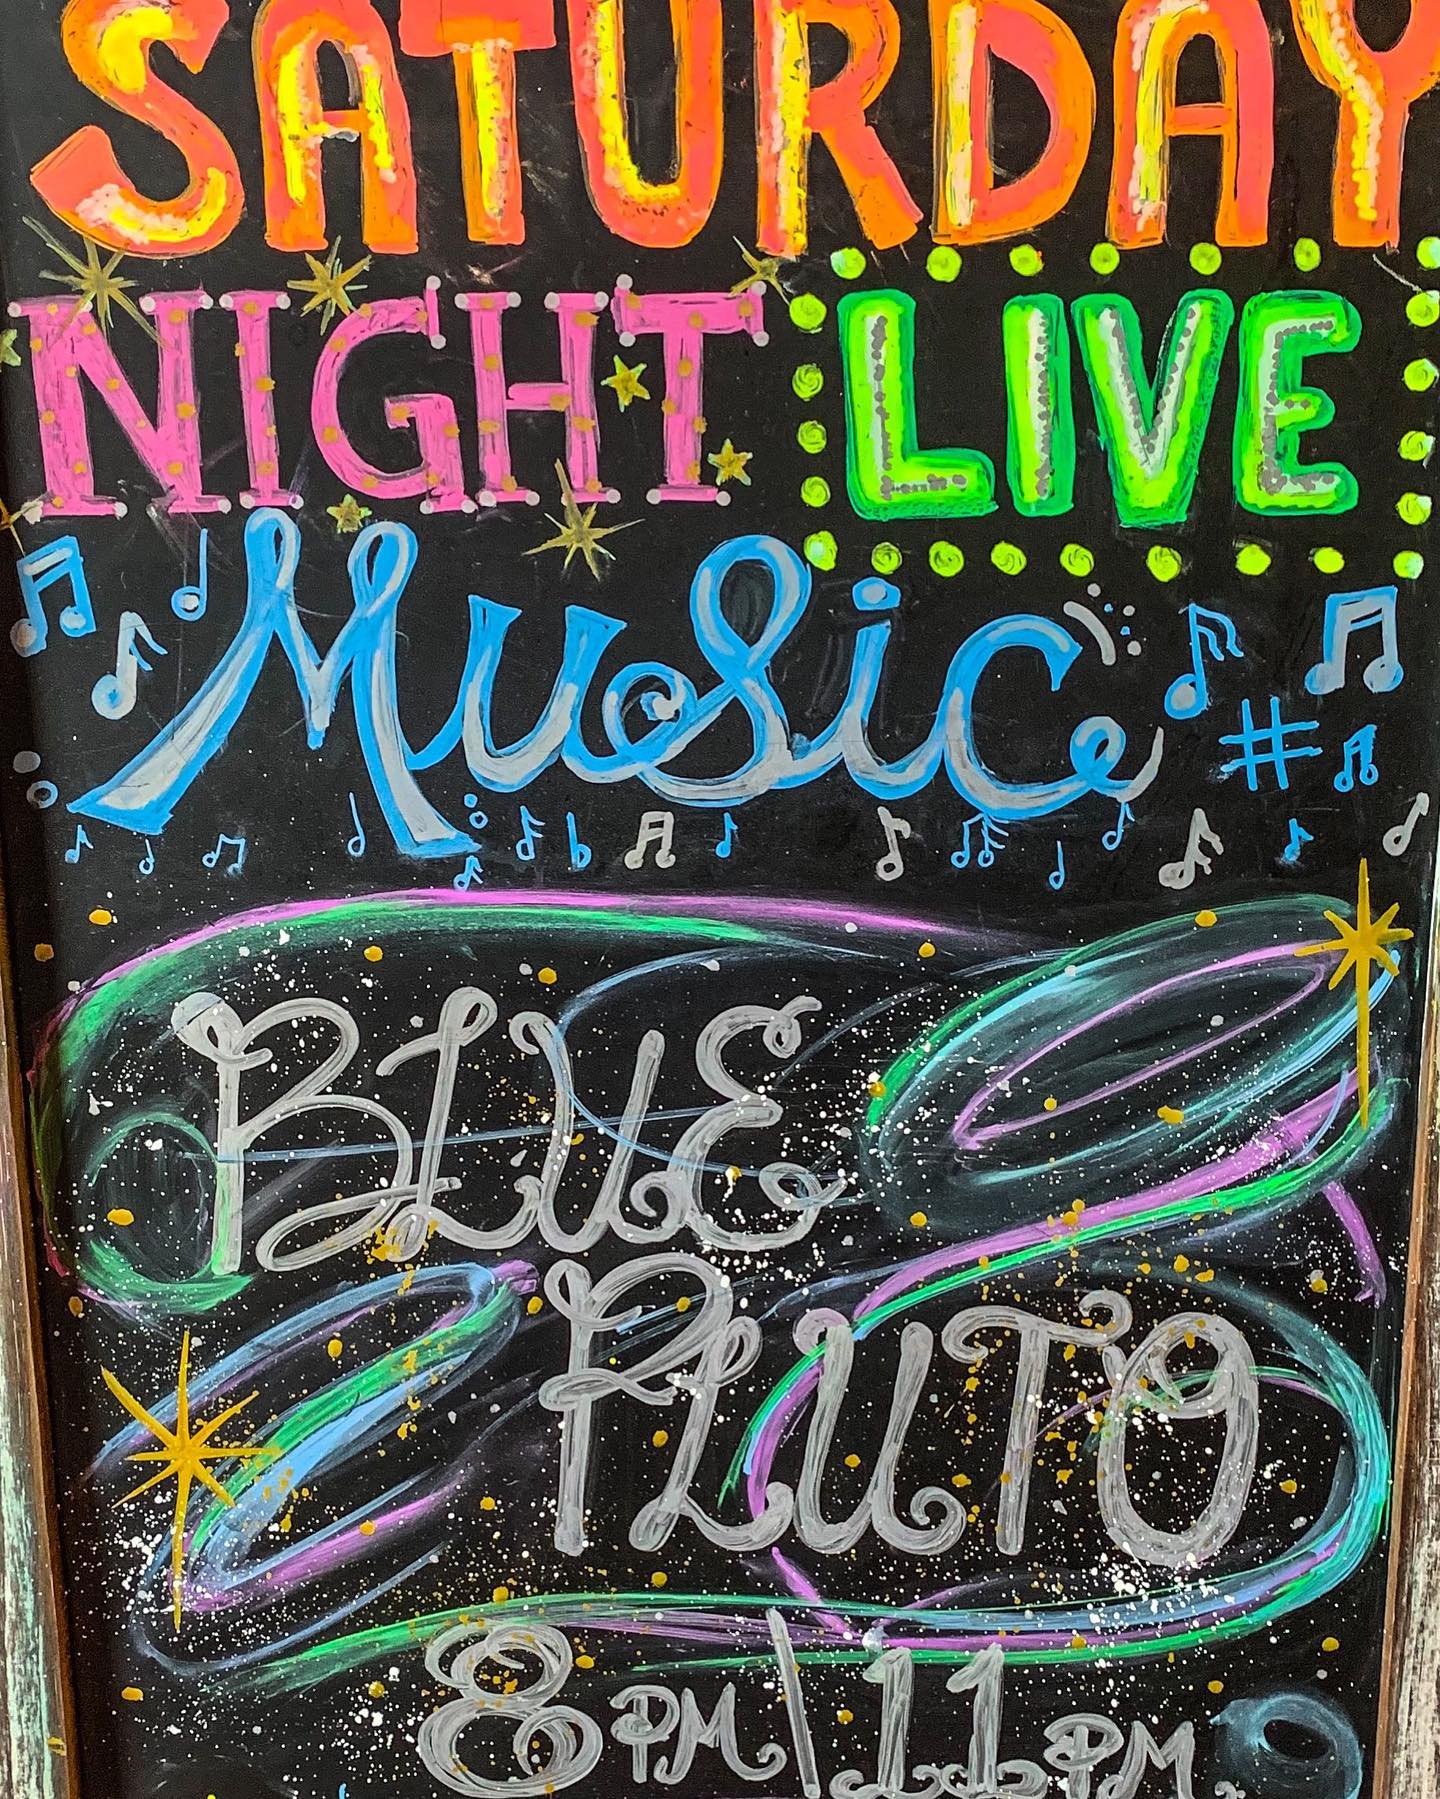 SATURDAY
NIGHT LIVE
Music #
BLUE
PLUTO
8PM \ 11PM